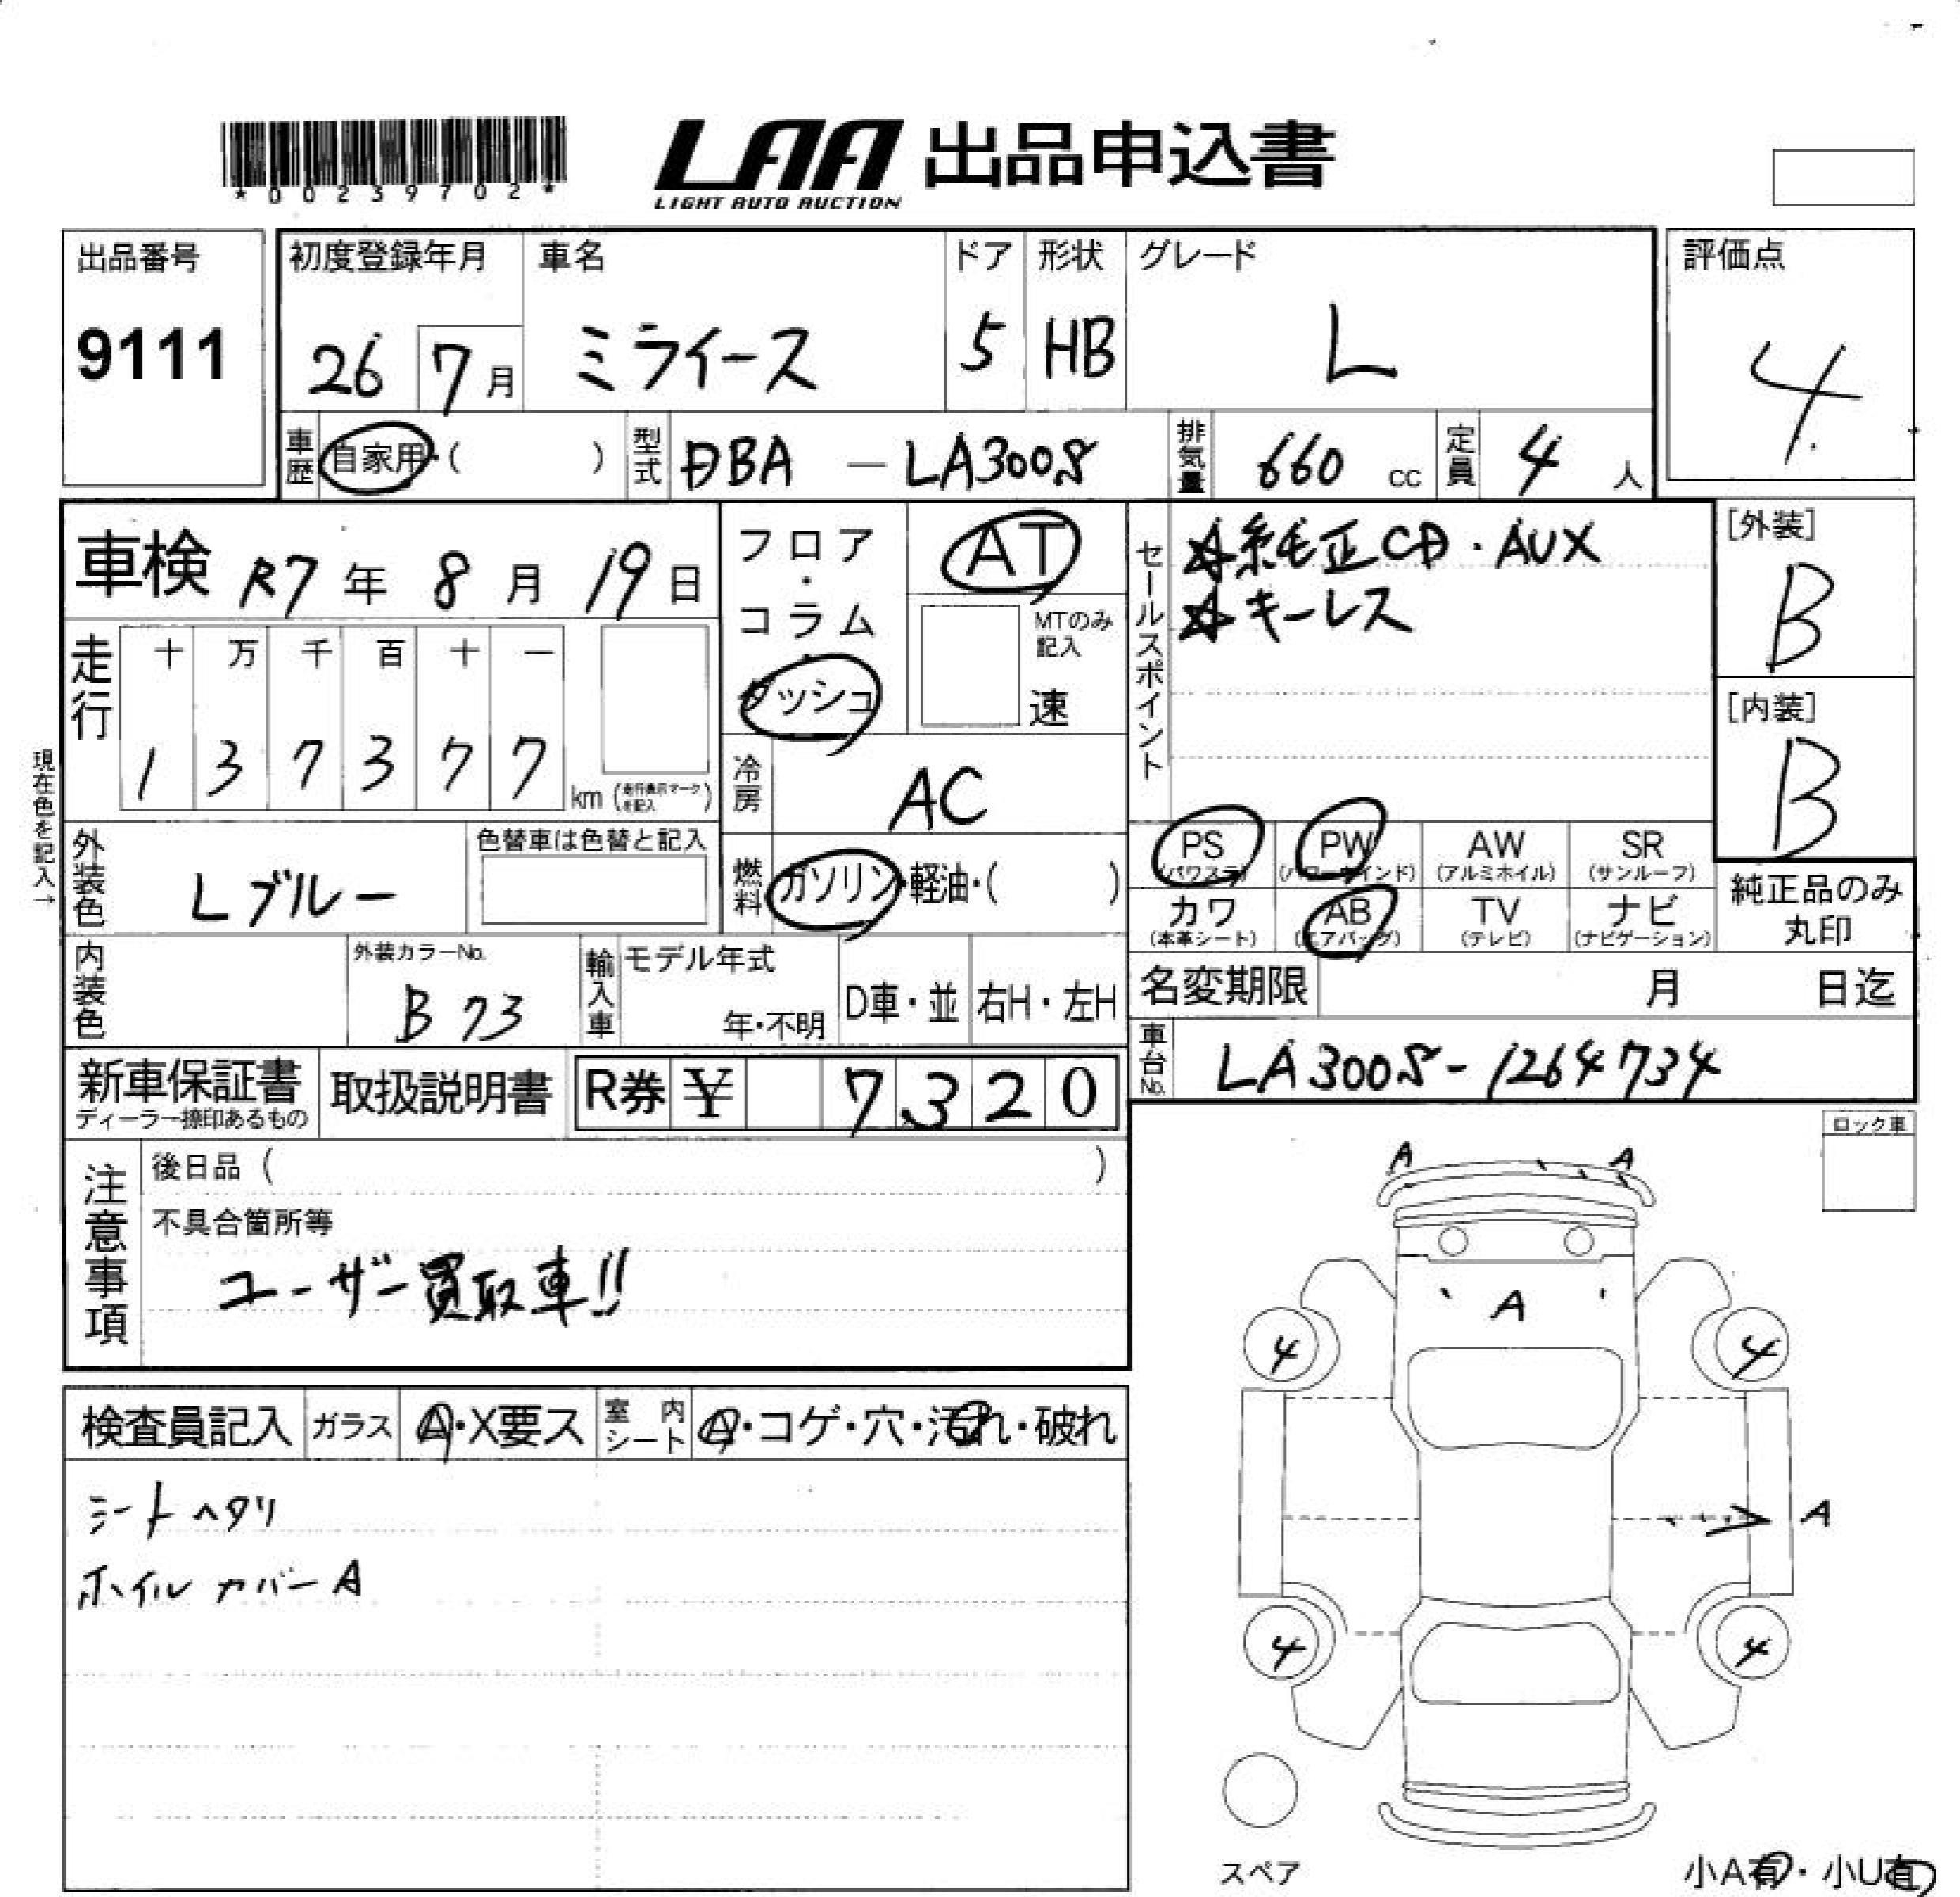 *00239702*
LAA 出品申込書
LIGHT AUTO AUCTION
出品番号
9111
初度登録年月
26 7月
車名
ミライース
ドア
5
形状
HB
グレード
L
評価点
4.
車歴 自家用・( )
型式 DBA - LA300S
排気量 660 cc
定員 4 人
車検 R7年 8月 19日
走行
十 万 千 百 十 一
1 3 7 3 7 7 km (走行表示マークを記入)
現在色を記入→
フロア・コラム・ダッシュ
AT
MTのみ記入
速
冷房 AC
燃料 ガソリン・軽油・( )
セールスポイント
☆純正CD・AUX
☆キーレス
[外装]
B
[内装]
B
外装色 Lブルー
色替車は色替と記入
PS (パワステ)
PW (パワーウインド)
AW (アルミホイル)
SR (サンルーフ)
カワ (本革シート)
AB (エアバッグ)
TV (テレビ)
ナビ (ナビゲーション)
純正品のみ丸印
内装色
外装カラーNo.
B73
輸入車
モデル年式
年・不明
D車・並
右H・左H
名変期限 月 日迄
車台No. LA300S-1264734
新車保証書
ディーラー捺印あるもの
取扱説明書
R券 ¥ 7,320
注意事項
後日品 ( )
不具合箇所等
ユーザー買取車!!
ロック車
A A
A
4 4
A
4 4
スペア
小A有・小U有
検査員記入 ガラス A・X要ス 室内シート A・コゲ・穴・汚れ・破れ
シートヘタリ
ホイルカバーA